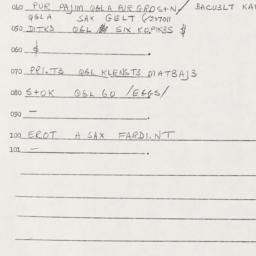 040 PUR PAJIM QGLA PUR GROSHN/ BACUSLT KAV
QGLA SAX GELT (/27011
050 DITKO QGL SIX KOPIKES $
060 $
070 PRI.TS QGL KLENSTS MATBAJS
080 S+OK QGL GO /EGGS/
090 —
100 EROT A SAX FARDI.NT
101 —